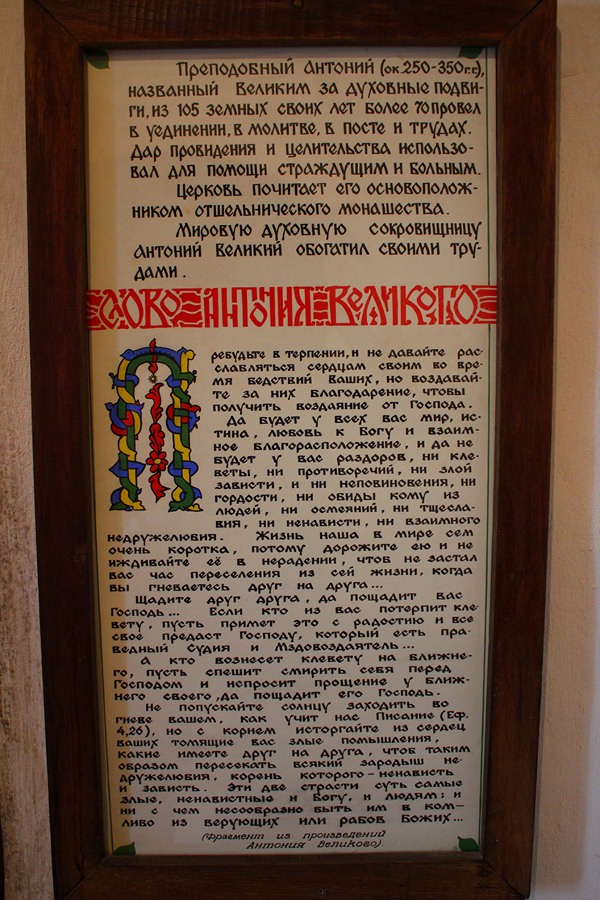 Преподобный Антоний (ок.250-350г.г),
названный Великим за духовные подви-
ги, из 105 земных своих лет более 70 провел
в уединении, в молитве, в посте и трудах.
Дар провидения и целительства использо-
вал для помощи страждущим и больным.
Церковь почитает его основополож-
ником отшельнического монашества.
Мировую духовную сокровищницу
Антоний Великий обогатил своими тру-
дами.
Слово Антония Великого
Пребудьте в терпении, и не давайте рас-
слабляться сердцам своим во вре-
мя бедствий Ваших, но воздавай-
те за них благодарение, чтобы
получить воздаяние от Господа.
Да будет у всех вас мир, ис-
тина, любовь к Богу и взаим-
ное благорасположение, и да не
будет у вас раздоров, ни кле-
веты, ни противоречий, ни злой
зависти, и ни неповиновения, ни
гордости, ни обиды кому из
людей, ни осмеяний, ни тщесла-
вия, ни ненависти, ни взаимного
недружелюбия. Жизнь наша в мире сем
очень коротка, потому дорожите ею и не
иждивайте её в нерадении, чтоб не застал
вас час переселения из сей жизни, когда
вы гневаетесь друг на друга...
Щадите друг друга, да пощадит вас
Господь... Если кто из вас потерпит кле-
вету, пусть примет это с радостию и все
своё предаст Господу, который есть пра-
ведный Судия и Мздовоздаятель...
А кто вознесет клевету на ближне-
го, пусть спешит смирить себя перед
Господом и испросит прощение у ближ-
него своего, да пощадит его Господь.
Не попускайте солнцу заходить во
гневе вашем, как учит нас Писание (Еф.
4,26), но с корнем исторгайте из сердец
ваших томящие вас злые помышления,
какие имеете друг на друга, чтоб таким
образом пересекать всякий зародыш не-
дружелюбия, корень которого - ненависть
и зависть. Эти две страсти суть самые
злые, ненавистные и Богу, и людям: и
ни с чем несообразно быть им в ком-
либо из верующих или рабов Божиих...
(Фрагмент из произведений
Антония Великово).